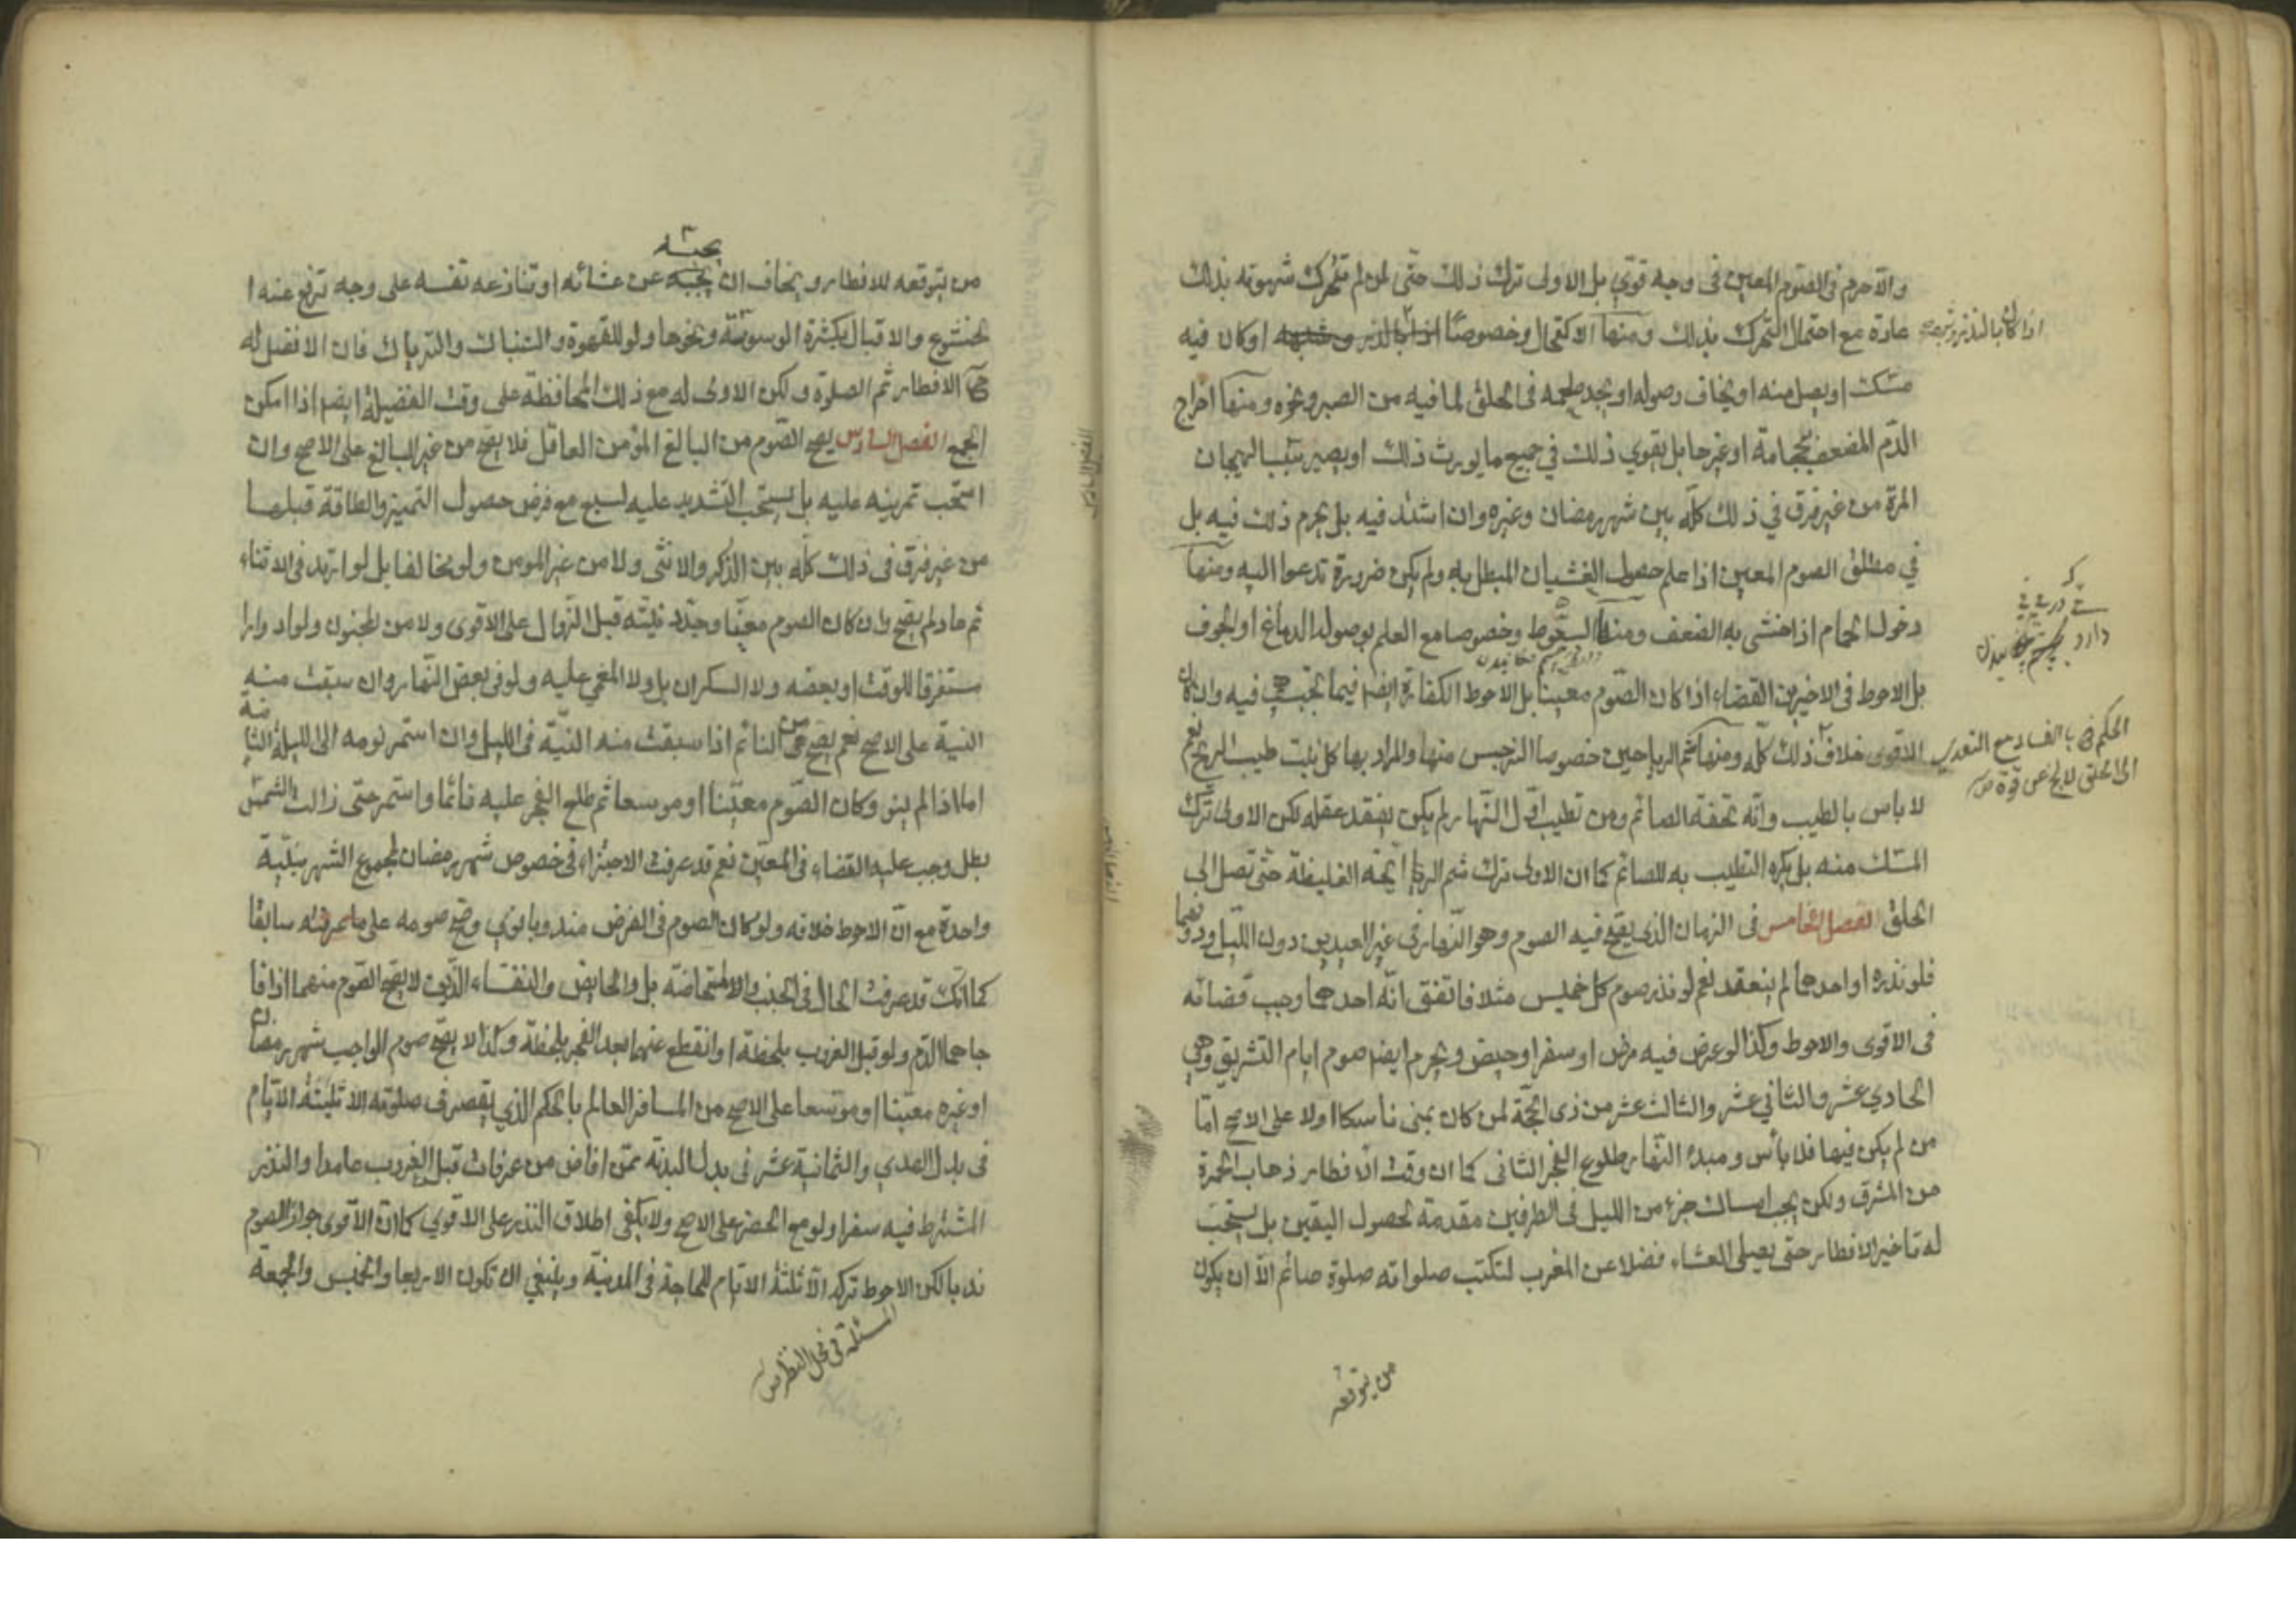 والا حرم في الصوم المعين في وجه قوي بل الاولى ترك ذلك حتى لمن لم تتحرك شهوته بذلك
عادة مع احتمال التحرك بذلك ومنها الاكتحال وخصوصا اذا بالذر او كان فيه
مسك او يصل منه او يخاف وصوله او يجد طعمه في الحلق لما فيه من الصبر ونحوه ومنها اخراج
الدم المضعف بحجامة او غيرها بل يقوي ذلك في جميع ما يورث ذلك او يصير سببا لهيجان
المرة من غير فرق في ذلك كله بين شهر رمضان وغيره وان اشتد فيه بل يحرم ذلك فيه بل
في مطلق الصوم المعين اذا علم حصول الغشيان المبطل به ولم يكن ضرورة تدعوا اليه ومنها
دخول الحمام اذا خشى به الضعف ومنها السعوط وخصوصا مع العلم بوصوله الدماغ او الجوف
بل الاحوط في الاخيرين القضاء اذا كان الصوم معينا بل الاحوط الكفارة ايضا فيما تجب فيه وان كان
الاقوى خلاف ذلك كله ومنها شم الرياحين خصوصا النرجس منها والمراد بها كل نبت طيب الريح نعم
لا باس بالطيب وانه تحفة الصائم ومن تطيب اول النهار لم يكن يفقد عقله لكن الاولى ترك
المسك منه بل يكره التطيب به للصائم كما ان الاولى ترك شم الرايحة الغليظة حتى تصل الى
الحلق الفصل الخامس في الزمان الذي يصح فيه الصوم وهو النهار في غير العيدين دون الليل ودونهما
فلو نذره او احدهما لم ينعقد نعم لو نذر صوم كل خميس مثلا فاتفق انه احدهما وجب قضائه
في الاقوى والاحوط وكذا لو عرض فيه مرض او سفر او حيض ويحرم ايضا صوم ايام التشريق وهي
الحادي عشر والثاني عشر والثالث عشر من ذي الحجة لمن كان بمنى ناسكا اولا على الاصح اما
من لم يكن فيها فلا باس ومبدء النهار طلوع الفجر الثاني كما ان وقت الافطار ذهاب الحمرة
من المشرق ولكن يجب امساك جزء من الليل في الطرفين مقدمة لحصول اليقين بل يستحب
له تاخير الافطار حتى يصلى العشاء فضلا عن المغرب لتكتب صلواته صلوة صائم الا ان يكون
من يتوقعه
اذا كان بالذر وشبهه
الحكم بالفساد مع التعدي
الى الحلق لا يخ عن قوة
يحبسه
من يتوقعه للافطار ويخاف ان عن عشائه او تنازعه نفسه على وجه ترفع عنه ا
لخشوع والاقبال بكثرة الوسوسة ونحوها ولو للقهوة والتنباك والترياك فان الافضل له
ح الافطار ثم الصلوة ولكن الاولى له مع ذلك المحافظة على وقت الفضيلة ايضا اذا امكن
الجمع الفصل السادس يصح الصوم من البالغ المؤمن العاقل فلا يصح من غير البالغ على الاصح وان
استحب تمرينه عليه بل يستحب التشديد عليه لسبع مع فرض حصول التميز والطاقة قبلها
من غير فرق في ذلك كله بين الذكر والانثى ولا من غير المومن ولو مخالفا بل لو ارتد في الاثناء
ثم عاد لم يصح وان كان الصوم معينا وجدد نيته قبل الزوال على الاقوى ولا من المجنون ولو ادوارا
مستغرقا للوقت او بعضه ولا السكران بل ولا المغمى عليه ولو في بعض النهار وان سبقت منه
النية على الاصح نعم يصح من النائم اذا سبقت منه النية في الليل وان استمر نومه الى الليلة الثانية
اما اذا لم ينو وكان الصوم معينا او موسعا ثم طلع الفجر عليه نائما واستمر حتى زالت الشمس
بطل وجب عليه القضاء في المعين نعم قد عرفت الاجتزاء في خصوص شهر رمضان لمجموع الشهر بنية
واحدة مع ان الاحوط خلافه ولو كان الصوم في الفرض مندوبا نوى وصح صومه على ما عرفته سابقا
كما انك قد عرفت الحال في الجنب والاستحاضة بل والحايض والنفساء الذين لا يصح الصوم منهما اذا فا
جاهما الدم ولو قبل الغروب بلحظة او انقطع عنهما بعد الفجر بلحظة وكذا لا يصح صوم الواجب شهر رمضان
او غيره معينا او موسعا على الاصح من المسافر العالم بالحكم الذي يقصر في صلوته الا ثلثة الايام
في بدل الهدي والثمانية عشر في بدل البدنة ممن افاض من عرفات قبل الغروب عامدا والنذر
المشترط فيه سفرا ولو مع الحضر على الاصح ولا يكفى اطلاق النذر على الاقوى كما ان الاقوى جواز الصوم
ندبا لكن الاحوط تركه الا ثلثة الايام للحاجة في المدينة وينبغي ان تكون الاربعا والخميس والجمعة
المسئلة في محل النظر